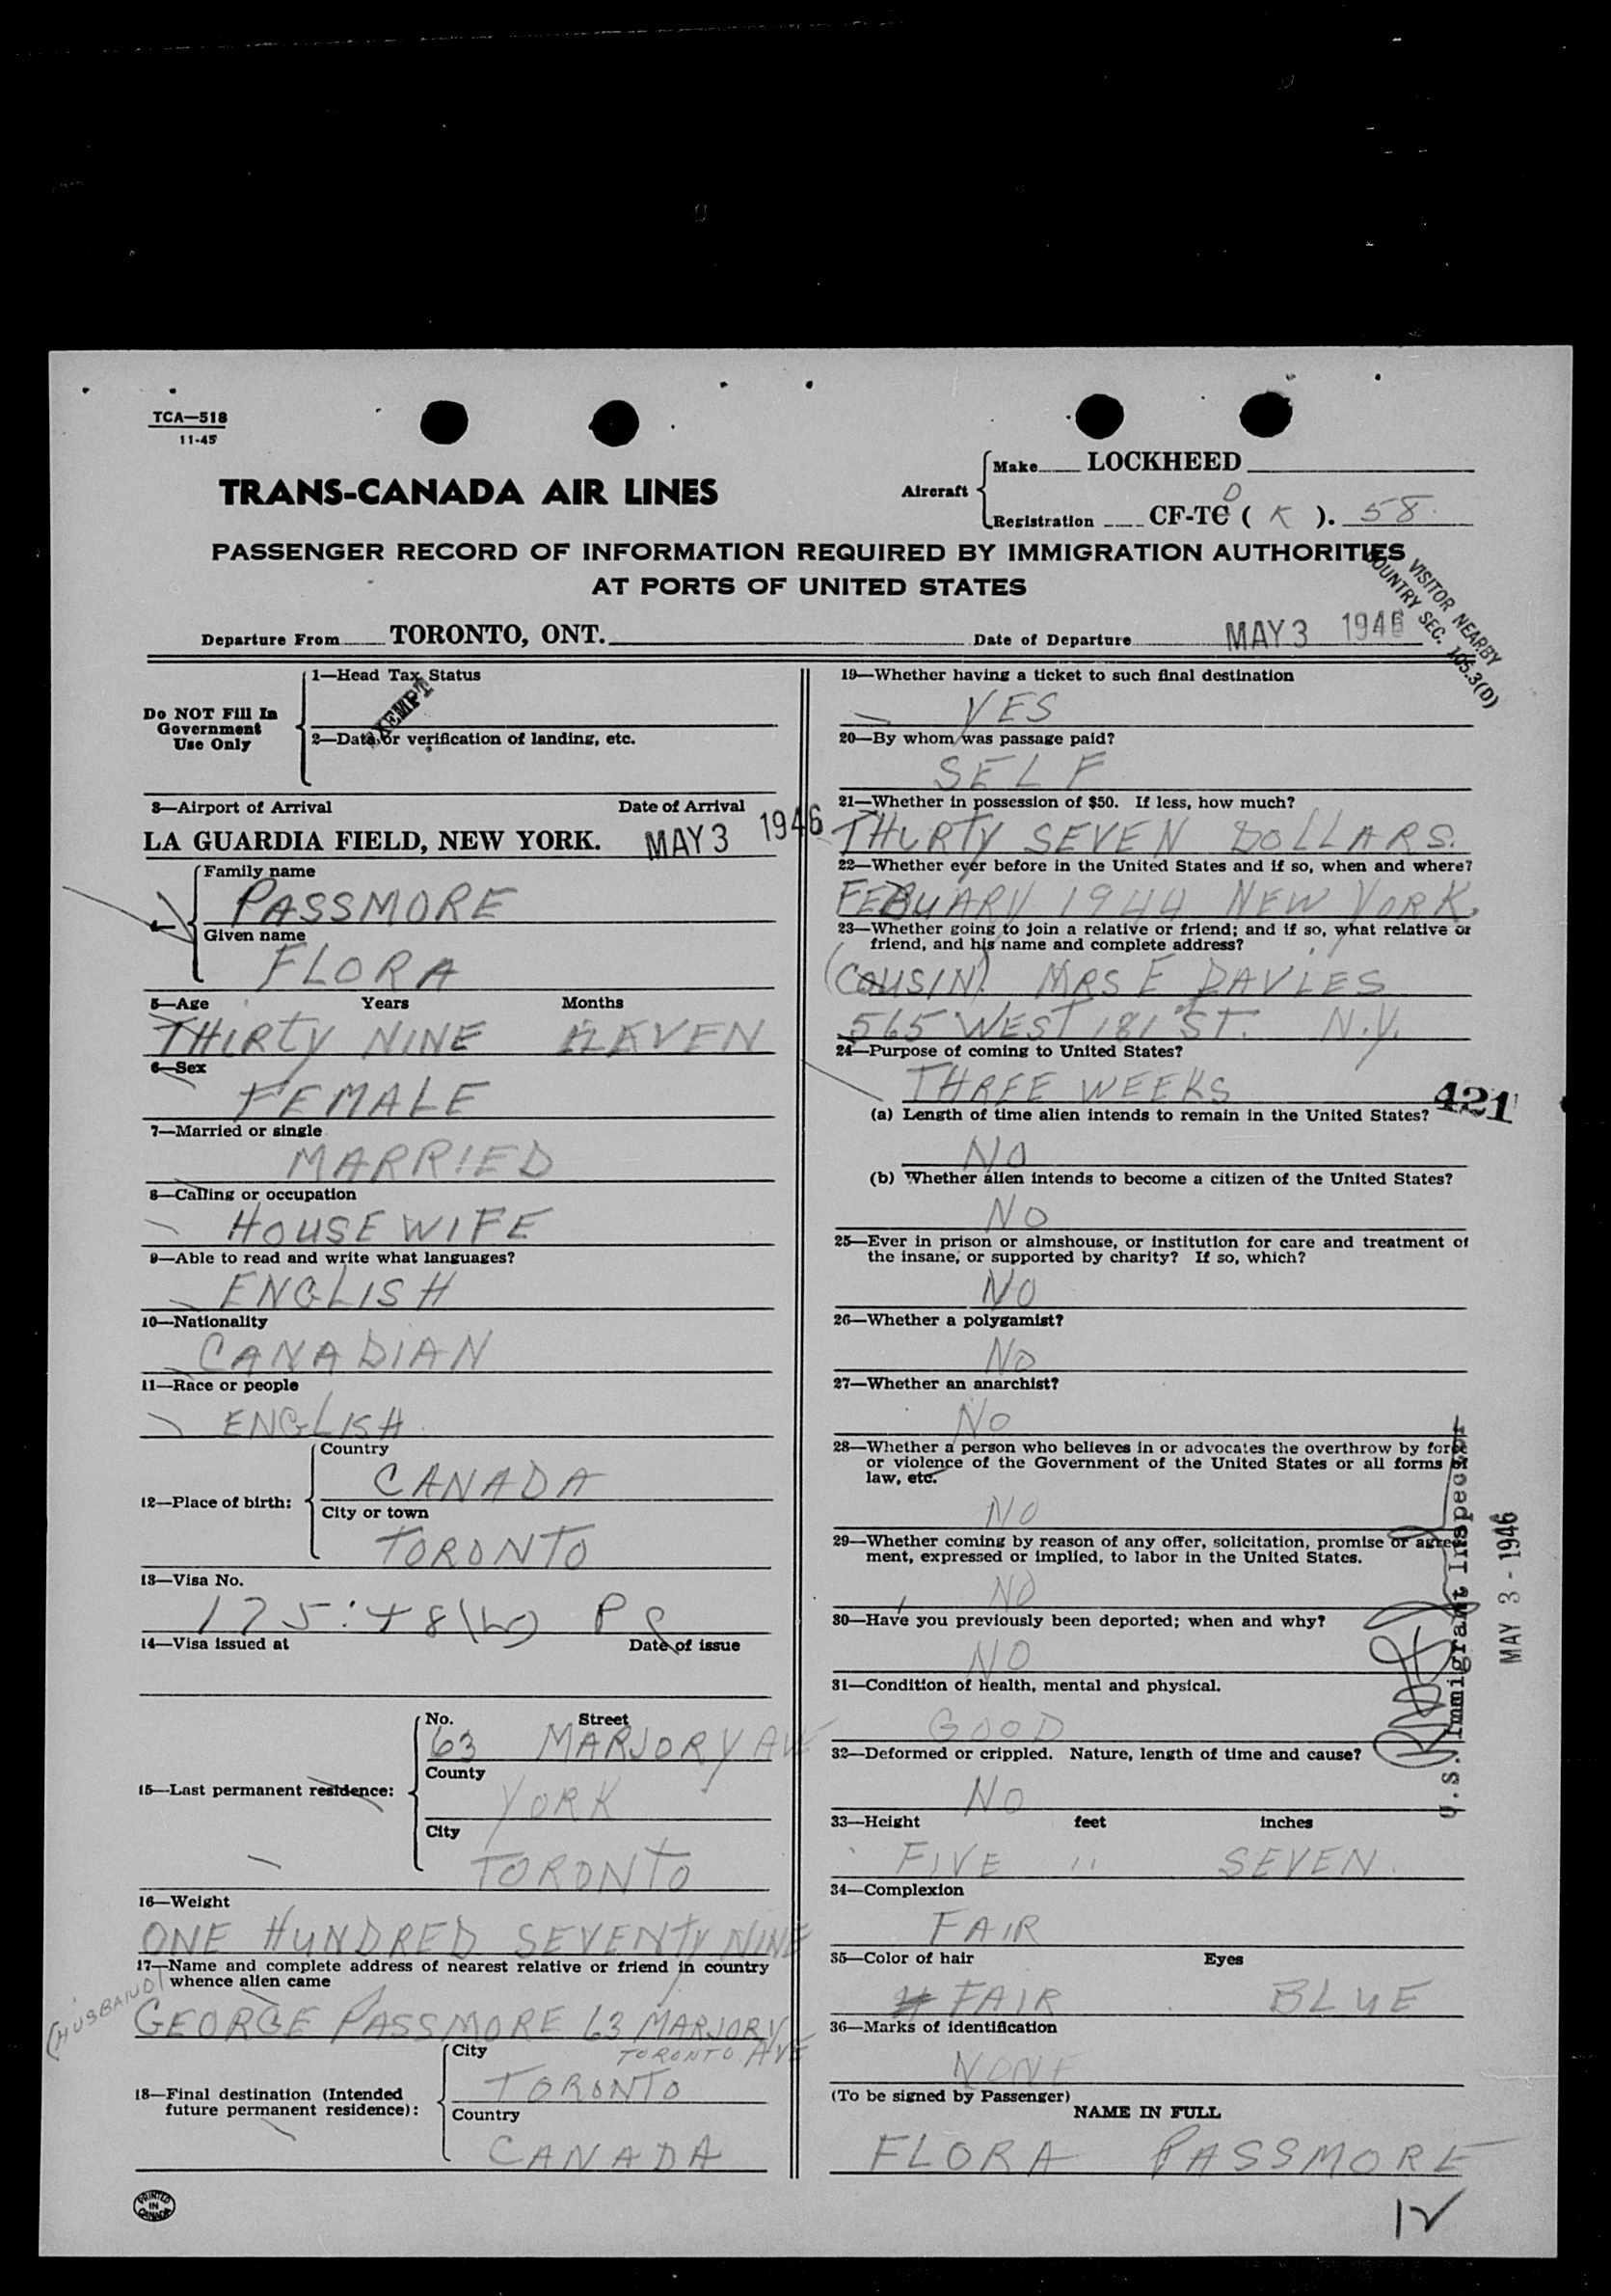 TCA—518
11-45
TRANS-CANADA AIR LINES
Aircraft
Make LOCKHEED
D
Registration CF-TC ( K ). 58
PASSENGER RECORD OF INFORMATION REQUIRED BY IMMIGRATION AUTHORITIES
AT PORTS OF UNITED STATES
VISITOR NEARBY
COUNTRY SEC. 105.3(D)
Departure From TORONTO, ONT. Date of Departure MAY 3 1946
Do NOT Fill In
Government
Use Only
1—Head Tax Status
EXEMPT
2—Date or verification of landing, etc.
3—Airport of Arrival Date of Arrival
LA GUARDIA FIELD, NEW YORK. MAY 3 1946
Family name
PASSMORE
Given name
FLORA
5—Age Years Months
THIRTY NINE ELEVEN
6—Sex
FEMALE
7—Married or single
MARRIED
8—Calling or occupation
HOUSEWIFE
9—Able to read and write what languages?
ENGLISH
10—Nationality
CANADIAN
11—Race or people
ENGLISH
12—Place of birth:
Country
CANADA
City or town
TORONTO
13—Visa No.
14—Visa issued at Date of issue
15—Last permanent residence:
No. Street
63 MARJORY AVE
County
YORK
City
TORONTO
16—Weight
ONE HUNDRED SEVENTY NINE
17—Name and complete address of nearest relative or friend in country
whence alien came
(HUSBAND)
GEORGE PASSMORE 63 MARJORY
TORONTO AVE
18—Final destination (Intended
future permanent residence):
City
TORONTO
Country
CANADA
PRINTED
IN
CANADA
19—Whether having a ticket to such final destination
YES
20—By whom was passage paid?
SELF
21—Whether in possession of $50. If less, how much?
THIRTY SEVEN DOLLARS.
22—Whether ever before in the United States and if so, when and where?
FEBUARY 1944 NEW YORK.
23—Whether going to join a relative or friend; and if so, what relative or
friend, and his name and complete address?
(COUSIN) MRS E DAVIES
565 WEST 181 ST. N.Y.
24—Purpose of coming to United States?
THREE WEEKS
421
(a) Length of time alien intends to remain in the United States?
NO
(b) Whether alien intends to become a citizen of the United States?
NO
25—Ever in prison or almshouse, or institution for care and treatment of
the insane, or supported by charity? If so, which?
NO
26—Whether a polygamist?
NO
27—Whether an anarchist?
NO
28—Whether a person who believes in or advocates the overthrow by force
or violence of the Government of the United States or all forms of
law, etc.
NO
29—Whether coming by reason of any offer, solicitation, promise or agree-
ment, expressed or implied, to labor in the United States.
NO
30—Have you previously been deported; when and why?
NO
31—Condition of health, mental and physical.
GOOD
32—Deformed or crippled. Nature, length of time and cause?
NO
33—Height feet inches
FIVE " SEVEN
34—Complexion
FAIR
35—Color of hair Eyes
FAIR BLUE
36—Marks of identification
NONE
(To be signed by Passenger)
NAME IN FULL
FLORA PASSMORE
U.S. Immigrant Inspector
MAY 3 - 1946